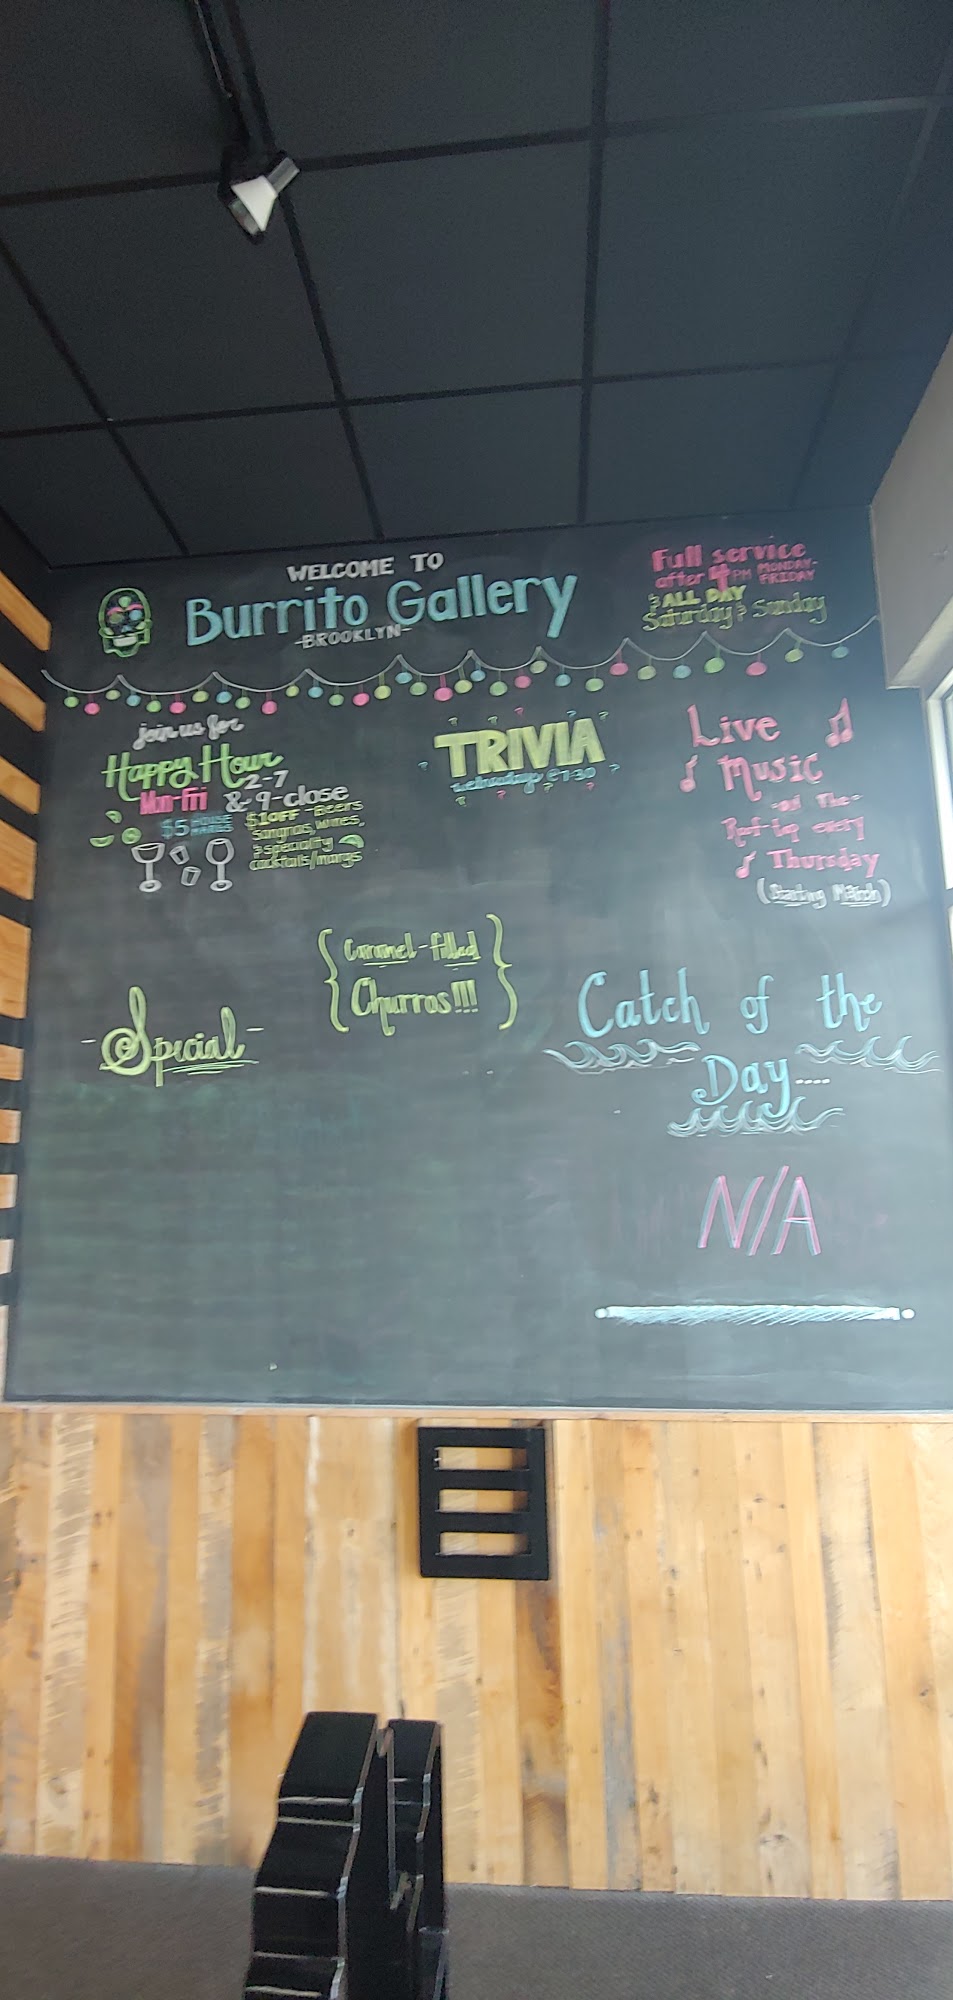 WELCOME TO
Burrito Gallery
-BROOKLYN-
Full service
after 4PM MONDAY-
FRIDAY
& ALL DAY
Saturday & Sunday
join us for
Happy Hour
2-7
Mon-Fri & 9-close
$5 HOUSE
$1 OFF - Beers
Sangrias, wines,
& specialty
cocktails/margs
TRIVIA
wednesdays @7:30
Live
Music
-on The-
Roof-top every
Thursday
(Starting March)
{Caramel-filled
Churros!!!}
-Special-
Catch of the
Day....
N/A